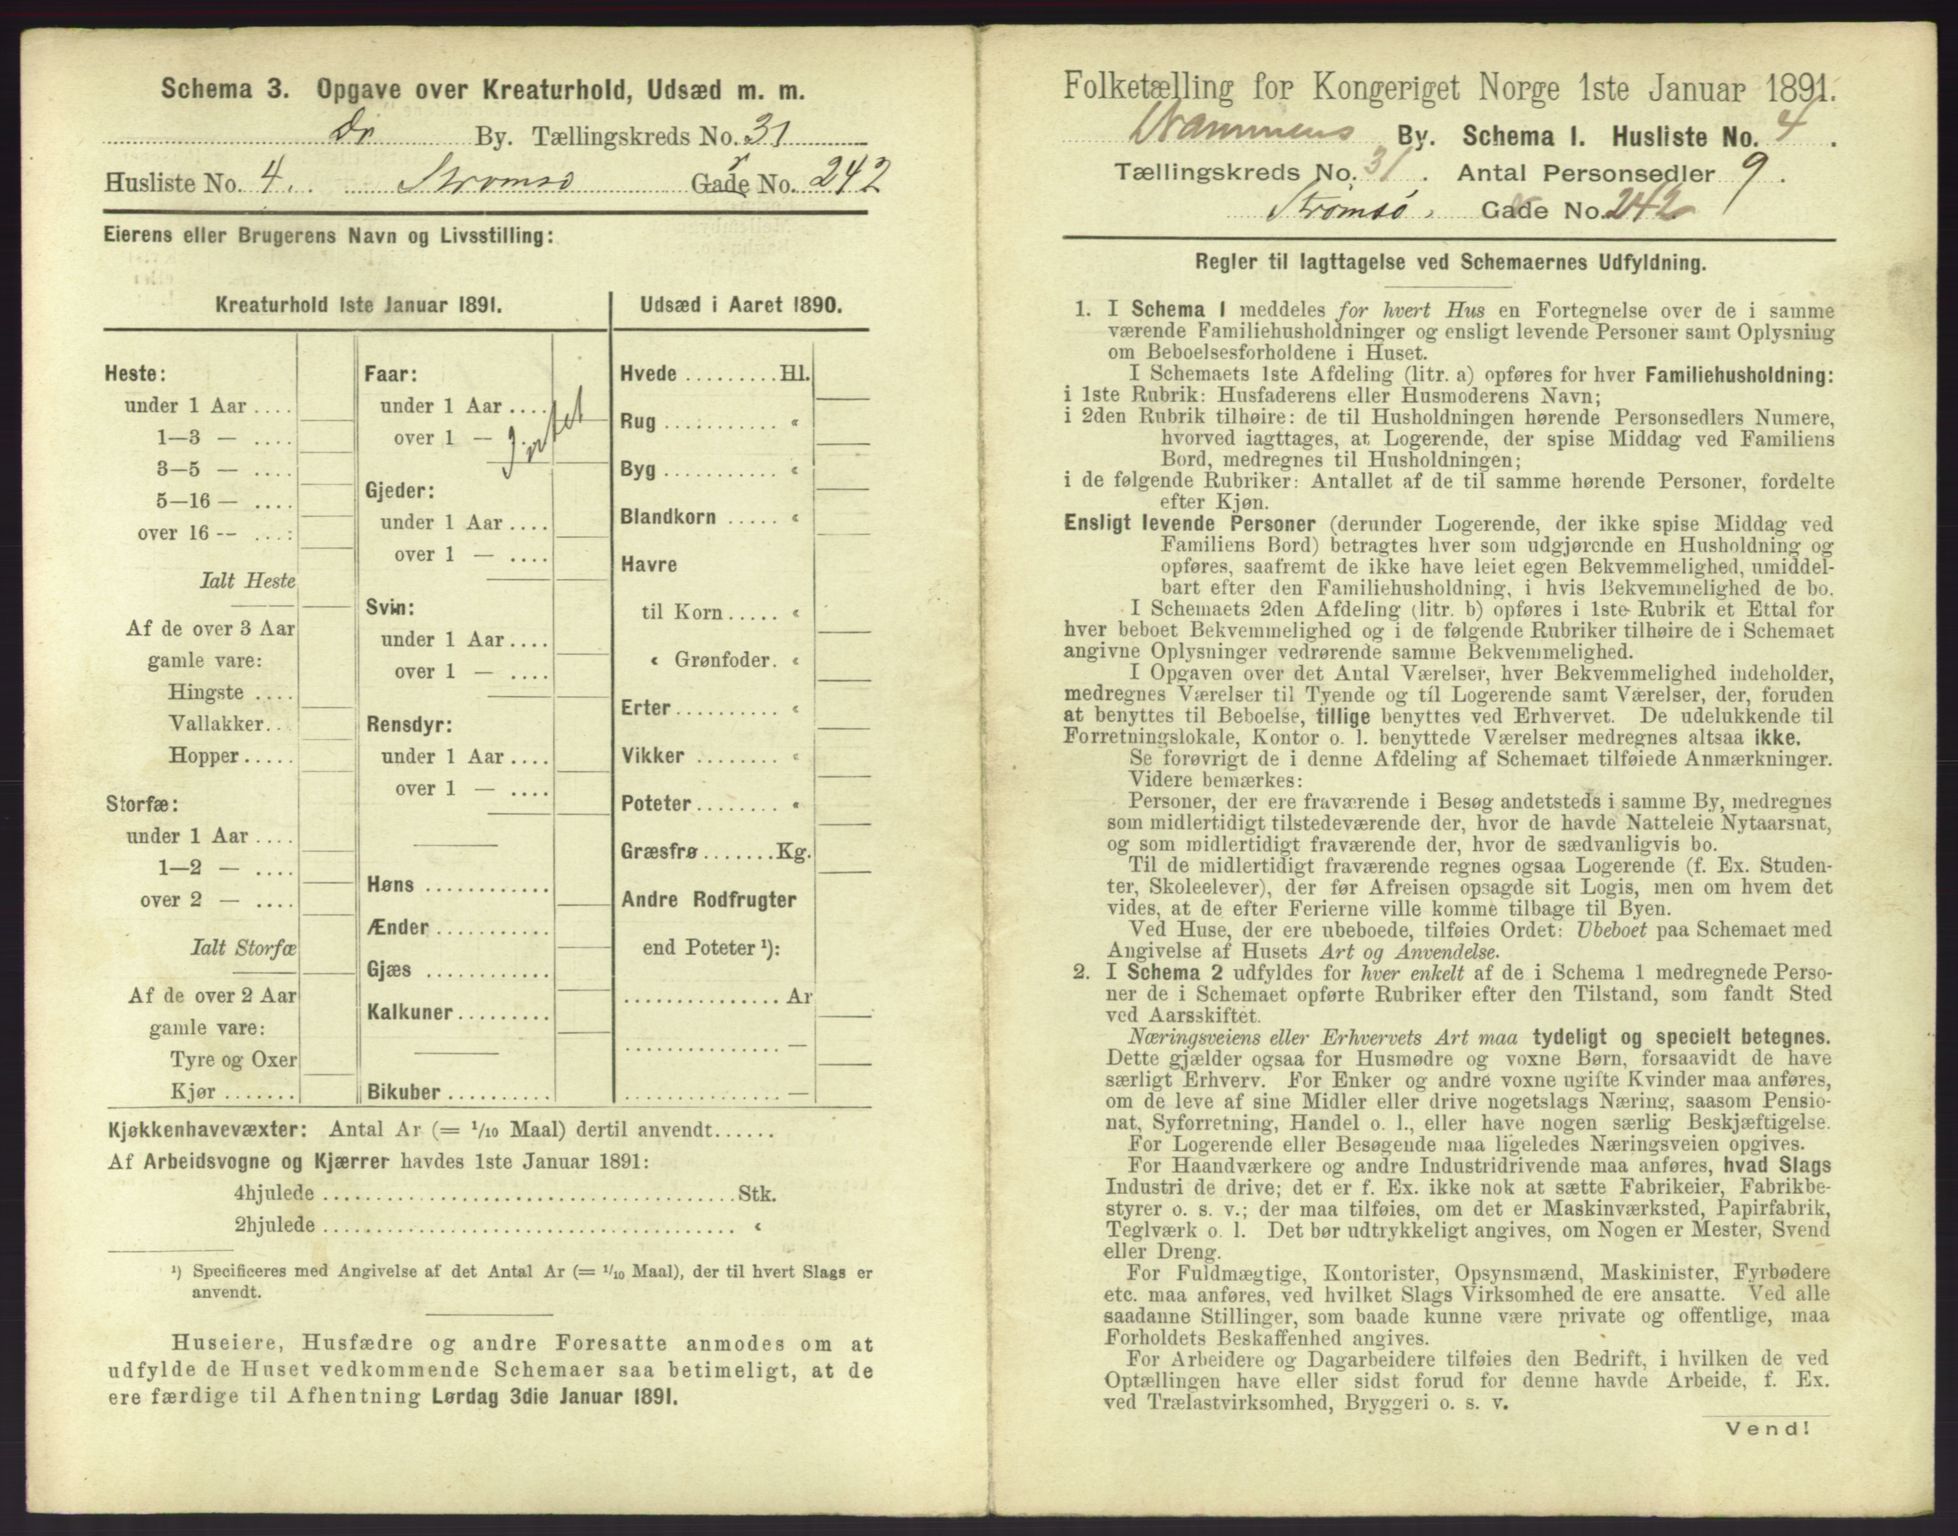 Schema 3. Opgave over Kreaturhold, Udsæd m. m.
Dr By. Tællingskreds No. 31
Husliste No. 4. Strømsø Gade No. 242
Eierens eller Brugerens Navn og Livsstilling:
Kreaturhold 1ste Januar 1891.
Heste:
under 1 Aar ....
1—3 — ....
3—5 — ....
5—16 — ....
over 16 -- ...:
Ialt Heste
Af de over 3 Aar
gamle vare:
Hingste ....
Vallakker. . .
Hopper.....
Storfæ:
under 1 Aar ....
1—2 — ....
over 2 — ....
Ialt Storfæ
Af de over 2 Aar
gamle vare:
Tyre og Oxer
Kjør .......
Faar:
under 1 Aar ....
over 1 — Intet
Gjeder:
under 1 Aar ....
over 1 — ....
Svin:
under 1 Aar ....
over 1 — ....
Rensdyr:
under 1 Aar ....
over 1 — ....
Høns ............
Ænder ...........
Gjæs ............
Kalkuner.........
Bikuber ..........
Udsæd i Aaret 1890.
Hvede ......... Hl.
Rug ............ «
Byg ............ «
Blandkorn ..... «
Havre
til Korn ..... «
« Grønfoder. «
Erter.......... «
Vikker ........ «
Poteter........ «
Græsfrø .......Kg.
Andre Rodfrugter
end Poteter ¹):
............... Ar
............... —
............... —
Kjøkkenhavevæxter: Antal Ar (= 1/10 Maal) dertil anvendt......
Af Arbeidsvogne og Kjærrer havdes 1ste Januar 1891:
4hjulede ........................................Stk.
2hjulede ........................................ «
¹) Specificeres med Angivelse af det Antal Ar (= 1/10 Maal), der til hvert Slags er
anvendt.
Huseiere, Husfædre og andre Foresatte anmodes om at
udfylde de Huset vedkommende Schemaer saa betimeligt, at de
ere færdige til Afhentning Lørdag 3die Januar 1891.
Folketælling for Kongeriget Norge 1ste Januar 1891.
Drammens By. Schema I. Husliste No. 4.
Tællingskreds No. 31. Antal Personsedler 9.
Strømsø. Gade No. 242
Regler til Iagttagelse ved Schemaernes Udfyldning.
1. I Schema I meddeles for hvert Hus en Fortegnelse over de i samme
værende Familiehusholdninger og ensligt levende Personer samt Oplysning
om Beboelsesforholdene i Huset.
I Schemaets 1ste Afdeling (litr. a) opføres for hver Familiehusholdning:
i 1ste Rubrik: Husfaderens eller Husmoderens Navn;
i 2den Rubrik tilhøire: de til Husholdningen hørende Personsedlers Numere,
hvorved iagttages, at Logerende, der spise Middag ved Familiens
Bord, medregnes til Husholdningen;
i de følgende Rubriker: Antallet af de til samme hørende Personer, fordelte
efter Kjøn.
Ensligt levende Personer (derunder Logerende, der ikke spise Middag ved
Familiens Bord) betragtes hver som udgjørende en Husholdning og
opføres, saafremt de ikke have leiet egen Bekvemmelighed, umiddel-
bart efter den Familiehusholdning, i hvis Bekvemmelighed de bo.
I Schemaets 2den Afdeling (litr. b) opføres i 1ste Rubrik et Ettal for
hver beboet Bekvemmelighed og i de følgende Rubriker tilhøire de i Schemaet
angivne Oplysninger vedrørende samme Bekvemmelighed.
I Opgaven over det Antal Værelser, hver Bekvemmelighed indeholder,
medregnes Værelser til Tyende og til Logerende samt Værelser, der, foruden
at benyttes til Beboelse, tillige benyttes ved Erhvervet. De udelukkende til
Forretningslokale, Kontor o. l. benyttede Værelser medregnes altsaa ikke.
Se forøvrigt de i denne Afdeling af Schemaet tilføiede Anmærkninger.
Videre bemærkes:
Personer, der ere fraværende i Besøg andetsteds i samme By, medregnes
som midlertidigt tilstedeværende der, hvor de havde Natteleie Nytaarsnat,
og som midlertidigt fraværende der, hvor de sædvanligvis bo.
Til de midlertidigt fraværende regnes ogsaa Logerende (f. Ex. Studen-
ter, Skoleelever), der før Afreisen opsagde sit Logis, men om hvem det
vides, at de efter Ferierne ville komme tilbage til Byen.
Ved Huse, der ere ubeboede, tilføies Ordet: Ubeboet paa Schemaet med
Angivelse af Husets Art og Anvendelse.
2. I Schema 2 udfyldes for hver enkelt af de i Schema 1 medregnede Perso-
ner de i Schemaet opførte Rubriker efter den Tilstand, som fandt Sted
ved Aarsskiftet.
Næringsveiens eller Erhvervets Art maa tydeligt og specielt betegnes.
Dette gjælder ogsaa for Husmødre og voxne Børn, forsaavidt de have
særligt Erhverv. For Enker og andre voxne ugifte Kvinder maa anføres,
om de leve af sine Midler eller drive nogetslags Næring, saasom Pensio-
nat, Syforretning, Handel o. l., eller have nogen særlig Beskjæftigelse.
For Logerende eller Besøgende maa ligeledes Næringsveien opgives.
For Haandværkere og andre Industridrivende maa anføres, hvad Slags
Industri de drive; det er f. Ex. ikke nok at sætte Fabrikeier, Fabrikbe-
styrer o. s. v.; der maa tilføies, om det er Maskinværksted, Papirfabrik,
Teglværk o. l. Det bør udtrykkeligt angives, om Nogen er Mester, Svend
eller Dreng.
For Fuldmægtige, Kontorister, Opsynsmænd, Maskinister, Fyrbødere
etc. maa anføres, ved hvilket Slags Virksomhed de ere ansatte. Ved alle
saadanne Stillinger, som baade kunne være private og offentlige, maa
Forholdets Beskaffenhed angives.
For Arbeidere og Dagarbeidere tilføies den Bedrift, i hvilken de ved
Optællingen have eller sidst forud for denne havde Arbeide, f. Ex.
ved Trælastvirksomhed, Bryggeri o. s. v.
Vend!